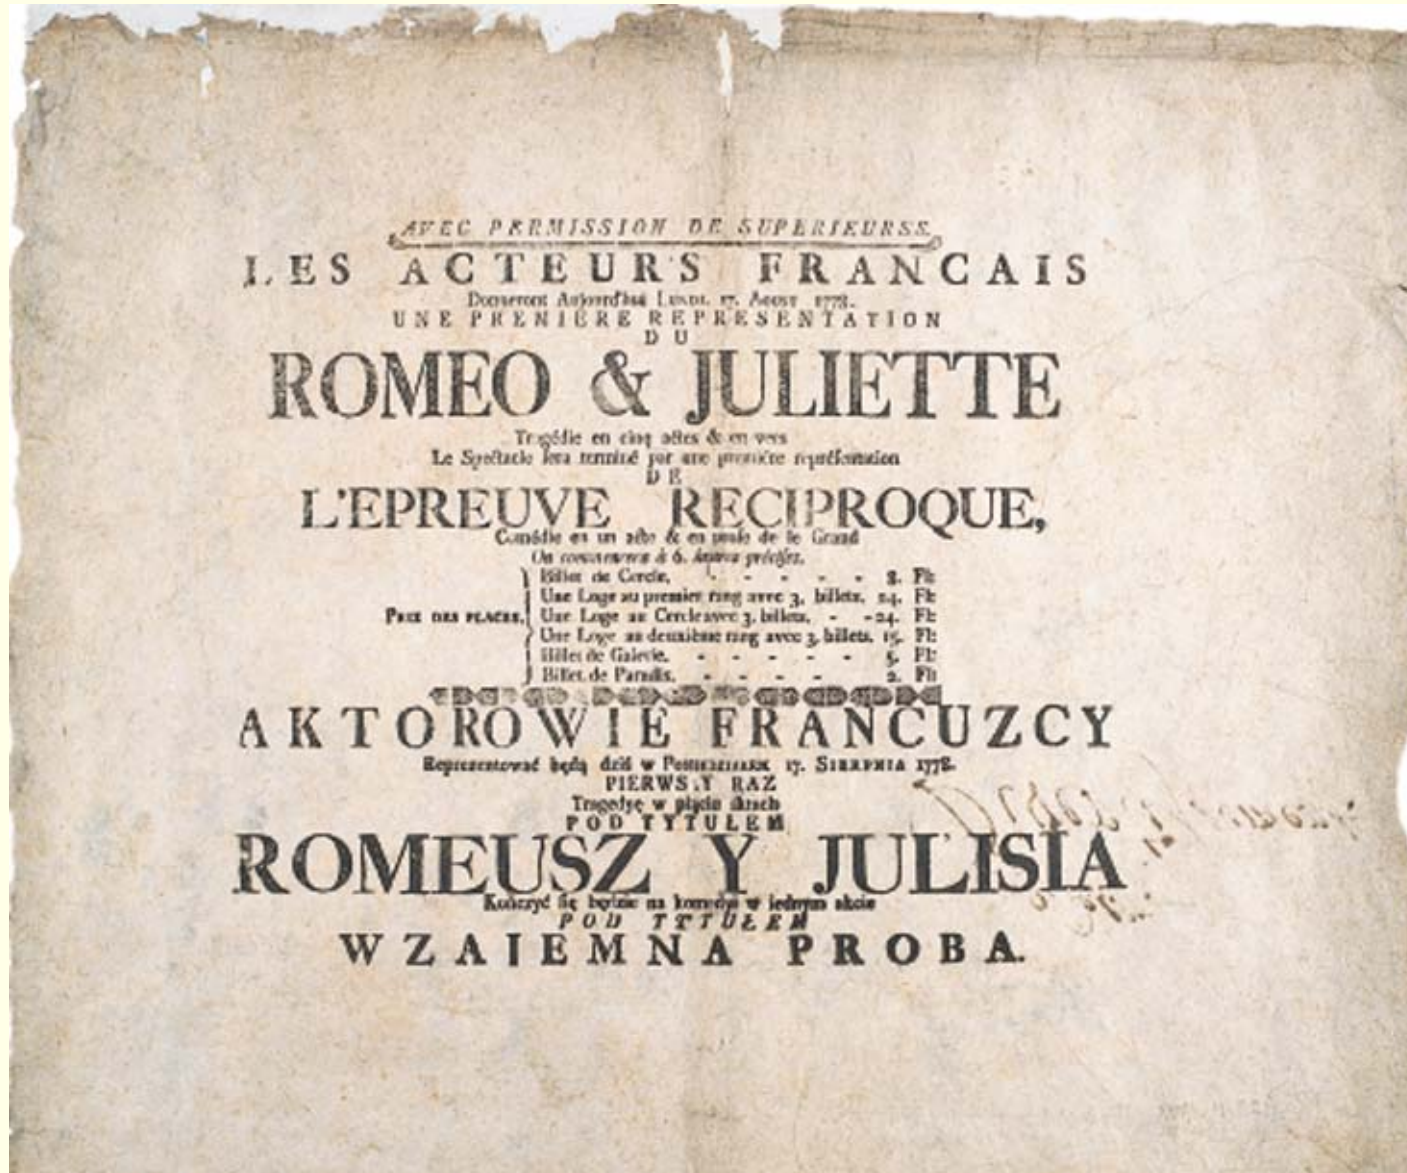 AVEC PERMISSION DE SUPERIEURSS.
LES ACTEURS FRANCAIS
Donneront Aujourd'hui LUNDI. 17. AOUST 1778.
UNE PREMIERE REPRESENTATION
DU
ROMEO & JULIETTE
Tragédie en cinq actes & en vers
Le Spectacle sera terminé par une première représentation
DE
L'EPREUVE RECIPROQUE,
Comédie en un acte & en prose de le Grand
On commencera à 6. heures précises.
Billet de Cercle. - - - - - 8. Fl:
Une Loge au premier rang avec 3. billets. 24. Fl:
PRIX DES PLACES. Une Loge au Cercle avec 3. billets. - - 24. Fl:
Une Loge au deuxième rang avec 3. billets. 15. Fl:
Billet de Galerie. - - - - - 5. Fl:
Billet de Paradis. - - - - 2. Fl:
AKTOROWIE FRANCUZCY
Reprezentować będą dziś w PONIEDZIAŁEK 17. SIERPNIA 1778.
PIERWSZY RAZ
Tragedyę w pięciu aktach
POD TYTUŁEM
ROMEUSZ Y JULISIA
Kończyć się będzie na komedyi w iednym akcie
POD TYTUŁEM
WZAIEMNA PROBA.